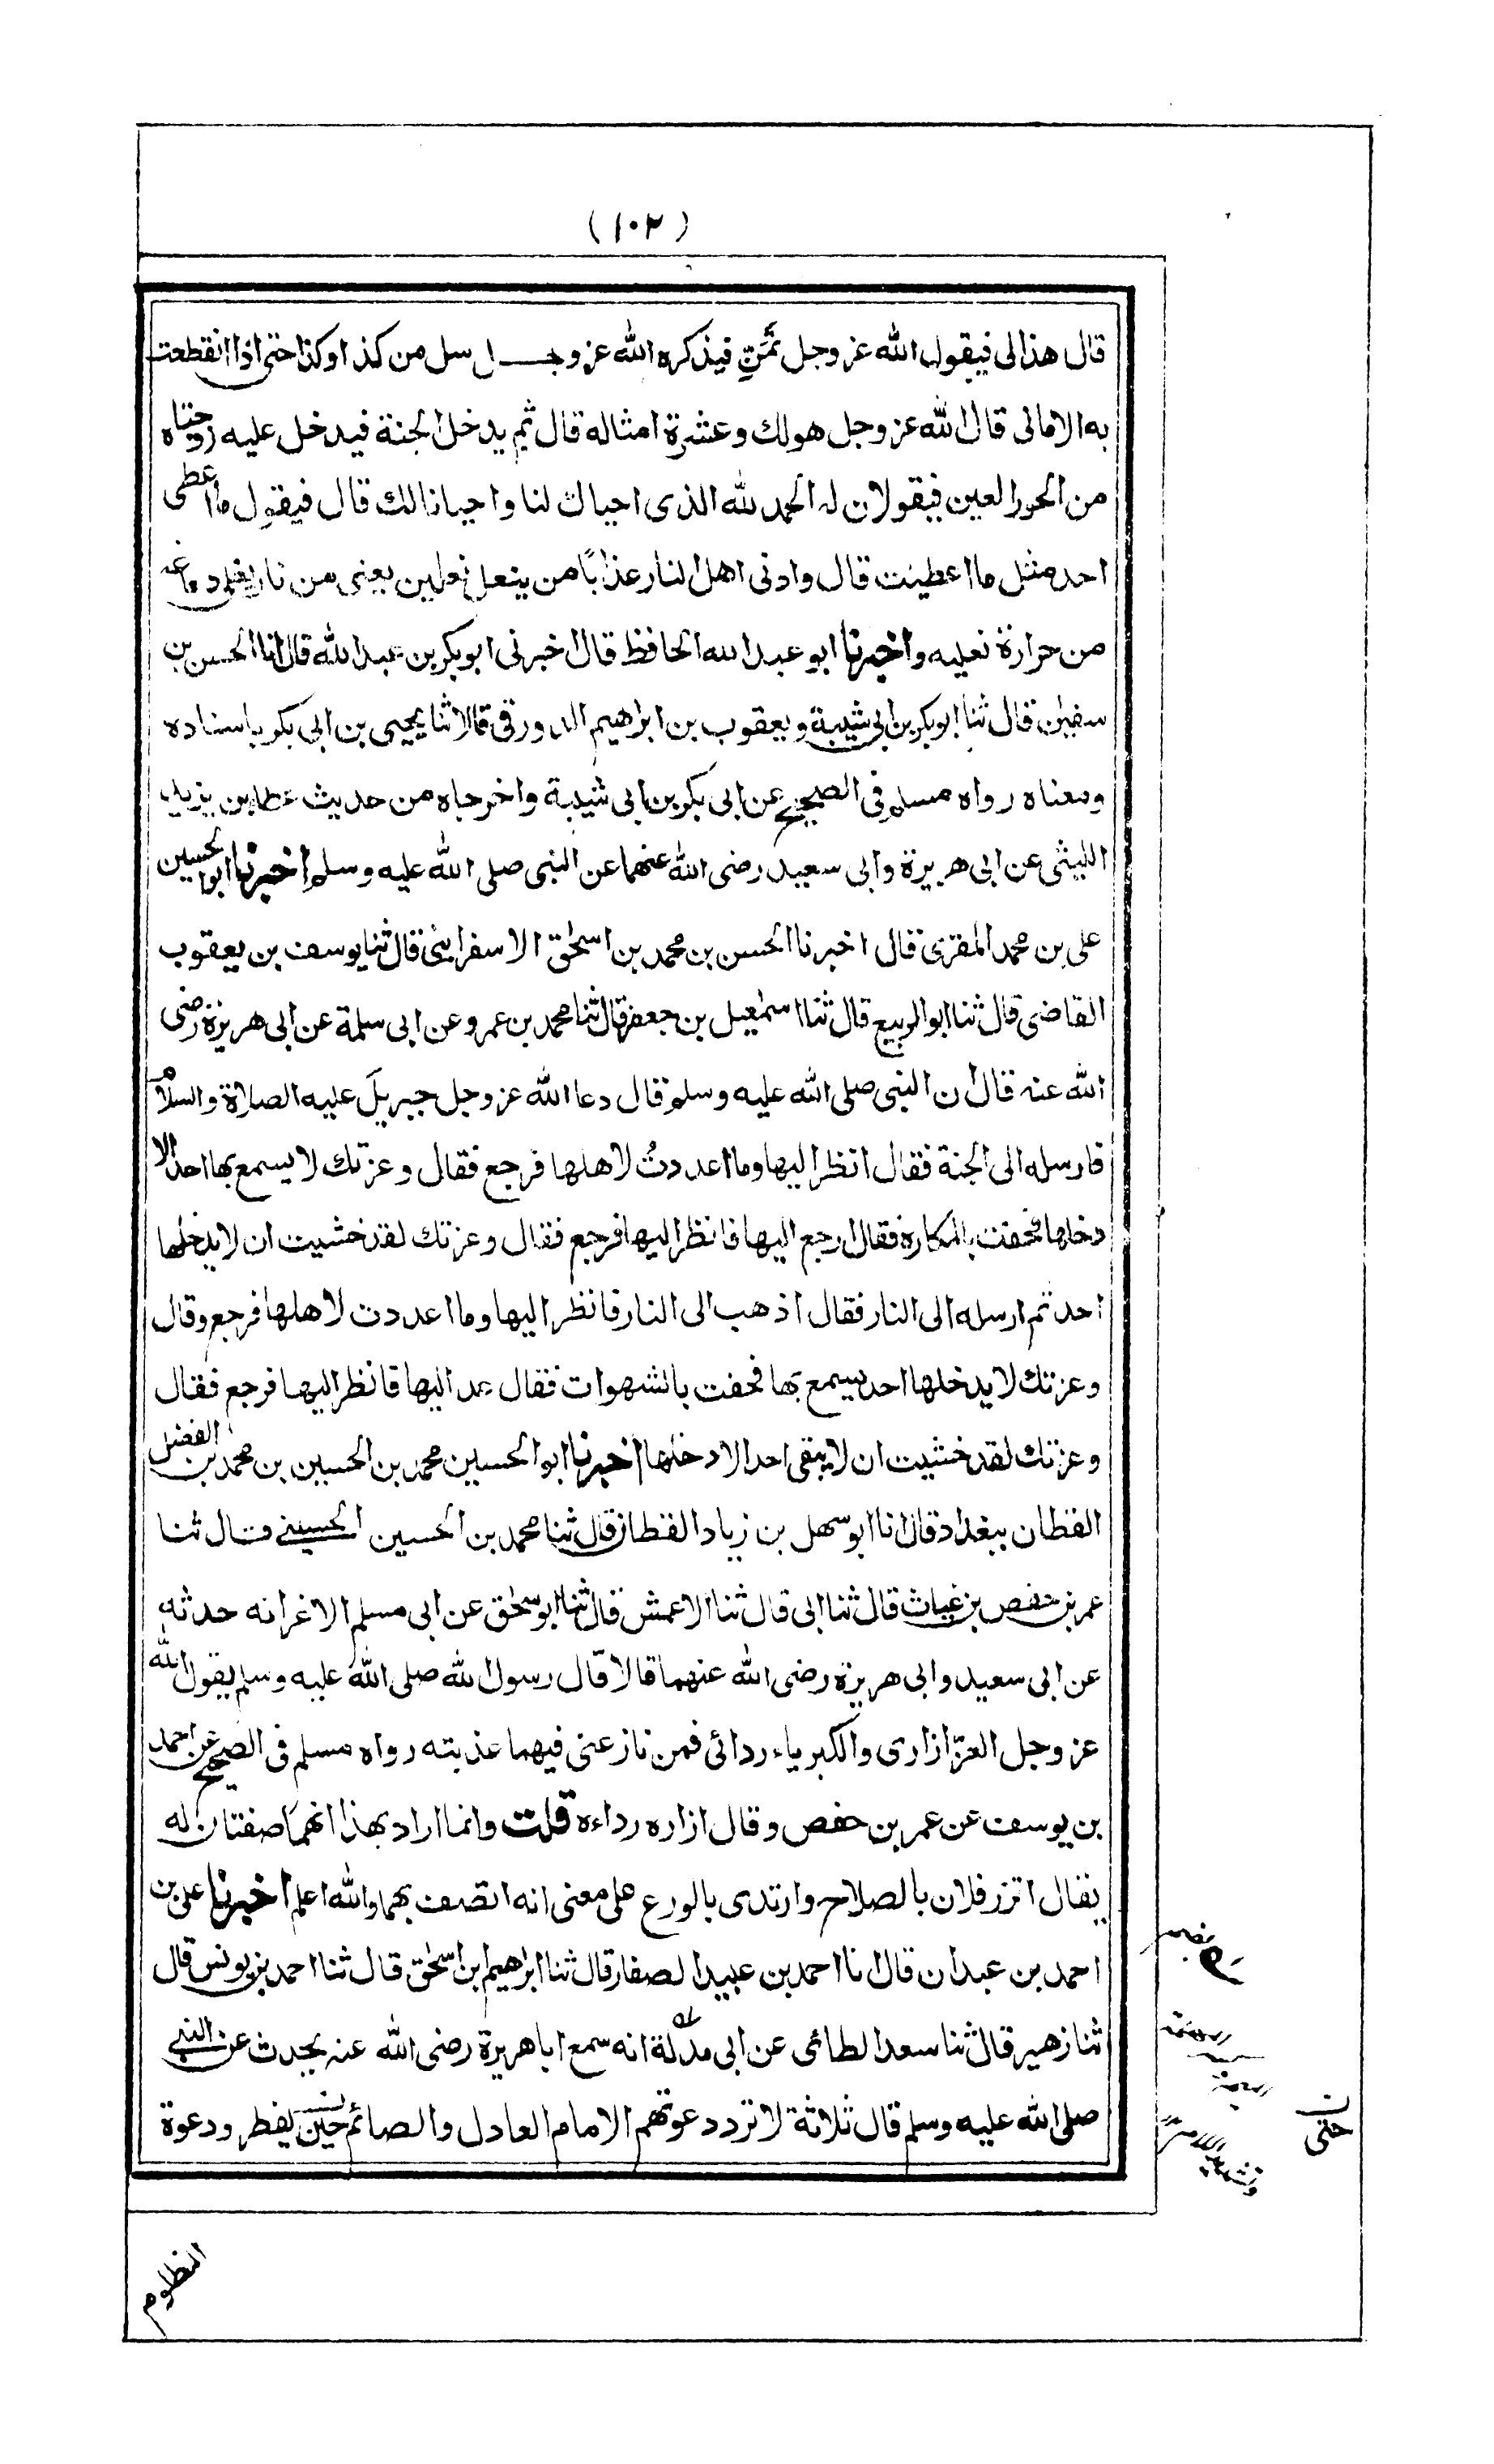 (١٠٢)
قال هذا لى فيقول الله عز وجل تَمَنِّ فيذكره الله عز وجل سل من كذا وكذا حتى اذا انقطعت
به الامانى قال الله عز وجل هو لك وعشرة امثاله قال ثم يدخل الجنة فيدخل عليه زوجتاه
من الحور العين فيقولان له الحمد لله الذى احياك لنا واحيانا لك قال فيقول ما اعطى
احد مثل ما اعطيت قال وادنى اهل النار عذابًا من ينعل نعلين يعنى من نار يغلى دماغه
من حرارة نعليه واخبرنا ابو عبد الله الحافظ قال اخبرنى ابو بكر بن عبد الله قال انا الحسن بن
سفين قال ثنا ابو بكر بن ابى شيبة ويعقوب بن ابراهيم الدورقى قالا ثنا يحيى بن ابى بكر باسناده
ومعناه رواه مسلم فى الصحيح عن ابى بكر بن ابى شيبة واخرجاه من حديث عطا بن يزيد
الليثى عن ابى هريرة وابى سعيد رضى الله عنهما عن النبى صلى الله عليه وسلم اخبرنا ابو الحسين
على بن محمد المقرى قال اخبرنا الحسن بن محمد بن اسحٰق الاسفراينى قال ثنا يوسف بن يعقوب
القاضى قال ثنا ابو الربيع قال ثنا اسمٰعيل بن جعفر قال ثنا محمد بن عمرو عن ابى سلمة عن ابى هريرة رضى
الله عنه قال ان النبى صلى الله عليه وسلم قال دعا الله عز وجل جبريل عليه الصلاة والسلام
فارسله الى الجنة فقال انظر اليها وما اعددتُ لاهلها فرجع فقال وعزتك لا يسمع بها احد الا
دخلها فحفت بالمكاره فقال ارجع اليها فانظر اليها فرجع فقال وعزتك لقد خشيت ان لا يدخلها
احد ثم ارسله الى النار فقال اذهب الى النار فانظر اليها وما اعددت لاهلها فرجع وقال
وعزتك لا يدخلها احد يسمع بها فحفت بالشهوات فقال عد اليها فانظر اليها فرجع فقال
وعزتك لقد خشيت ان لا يبقى احد الا دخلها اخبرنا ابو الحسين محمد بن الحسين بن محمد بن الفضل
القطان ببغداد قال انا ابو سهل بن زياد القطان قال ثنا محمد بن الحسين الحسينى قال ثنا
عمر بن حفص بن غياث قال ثنا ابى قال ثنا الاعمش قال ثنا ابو سحٰق عن ابى مسلم الاغر انه حدثه
عن ابى سعيد وابى هريرة رضى الله عنهما قالا قال رسول الله صلى الله عليه وسلم يقول الله
عز وجل العزّ ازارى والكبرياء ردائى فمن نازعنى فيهما عذبته رواه مسلم فى الصحيح عن احمد
بن يوسف عن عمر بن حفص وقال ازاره رداءه قلت وانما اراد بهذا انهما صفتان له
يقال اتزر فلان بالصلاح وارتدى بالورع على معنى انه اتصف بهما والله اعلم اخبرنا على بن
احمد بن عبدان قال انا احمد بن عبيد الصفار قال ثنا ابراهيم ابن اسحٰق قال ثنا احمد بن يونس قال
ثنا زهير قال ثنا سعد الطائى عن ابى مدلّة انه سمع ابا هريرة رضى الله عنه يحدث عن النبى
صلى الله عليه وسلم قال ثلاثة لا ترد دعوتهم الامام العادل والصائم حين يفطر ودعوة
حتى
المظلوم